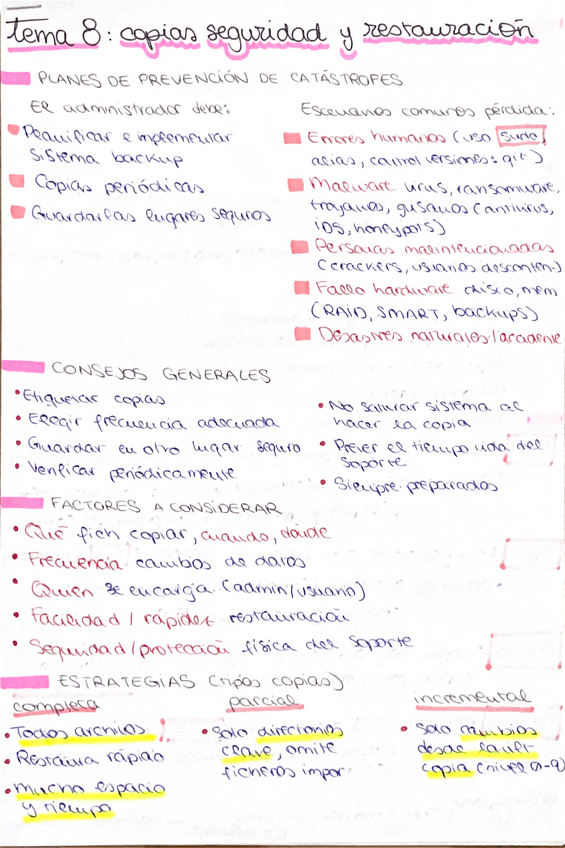 tema 8: copias seguridad y restauración
PLANES DE PREVENCIÓN DE CATÁSTROFES
El administrador debe:
Planificar e implementar
sistema backup
Copias periódicas
Guardarlas lugares seguros
Escenarios comunes pérdida:
Errores humanos (uso sudo,
alias, control versiones: git)
Malware virus, ransomware,
troyanos, gusanos (antivirus,
IDS, honeypots)
Personas malintencionadas
(crackers, usuarios desconten.)
Fallo hardware disco, mem
(RAID, SMART, backups)
Desastres naturales/accidente
CONSEJOS GENERALES
• Etiquetar copias
• Elegir frecuencia adecuada
• Guardar en otro lugar seguro
• Verificar periódicamente
• No saturar sistema al
hacer la copia
• Prever el tiempo vida del
soporte
• Siempre preparados
FACTORES A CONSIDERAR
• Qué fich copiar, cuando, dónde
• Frecuencia cambios de datos
• Quien se encarga (admin/usuario)
• Facilidad / rápidez restauración
• Seguridad/protección física del soporte
ESTRATEGIAS (tipos copias)
completa
• Todos archivos
• Restaura rápido
• Mucho espacio
y tiempo
parcial
• Solo directorios
clave, omite
ficheros impor.
incremental
• Solo cambios
desde la últ
copia (nivel 0-9)